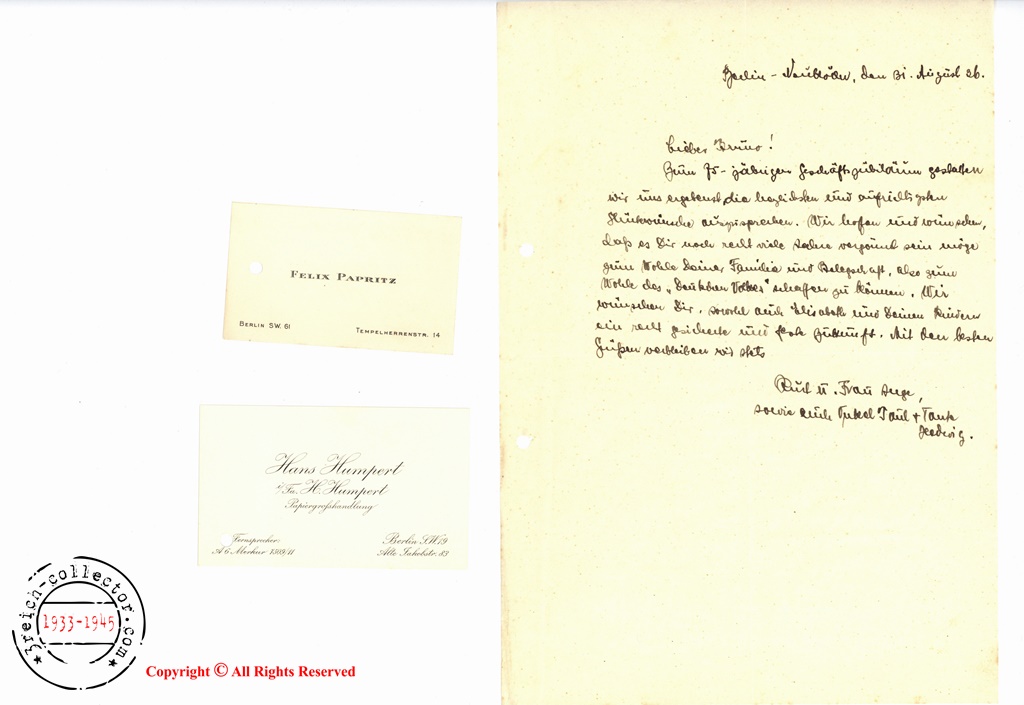 FELIX PAPRITZ
BERLIN SW. 61
TEMPELHERRENSTR. 14
Hans Humpert
i/Fa. H. Humpert
Papiergroßhandlung
Fernsprecher:
A 6 Merkur 1309/11
Berlin S.W.19
Alte Jakobstr. 83
3reich-collector.com
1933-1945
Copyright © All Rights Reserved
Berlin - Neukölln, den 31. August 36.
Lieber Bruno!
Zum 75-jährigen Geschäftsjubiläum gestatten
wir uns ergebenst die herzlichsten und aufrichtigsten
Glückwünsche auszusprechen. Wir hoffen und wünschen,
daß es Dir noch recht viele Jahre vergönnt sein möge
zum Wohle Deiner Familie und Belegschaft, also zum
Wohle des „Deutschen Volkes" schaffen zu können. Wir
wünschen Dir, sowohl auch Elisabeth und Deinen Kindern
ein recht gesicherte und frohe Zukunft. Mit den besten
Grüßen verbleiben wir stets
Kurt u. Frau
sowie auch Onkel Paul + Tante
Hedwig.